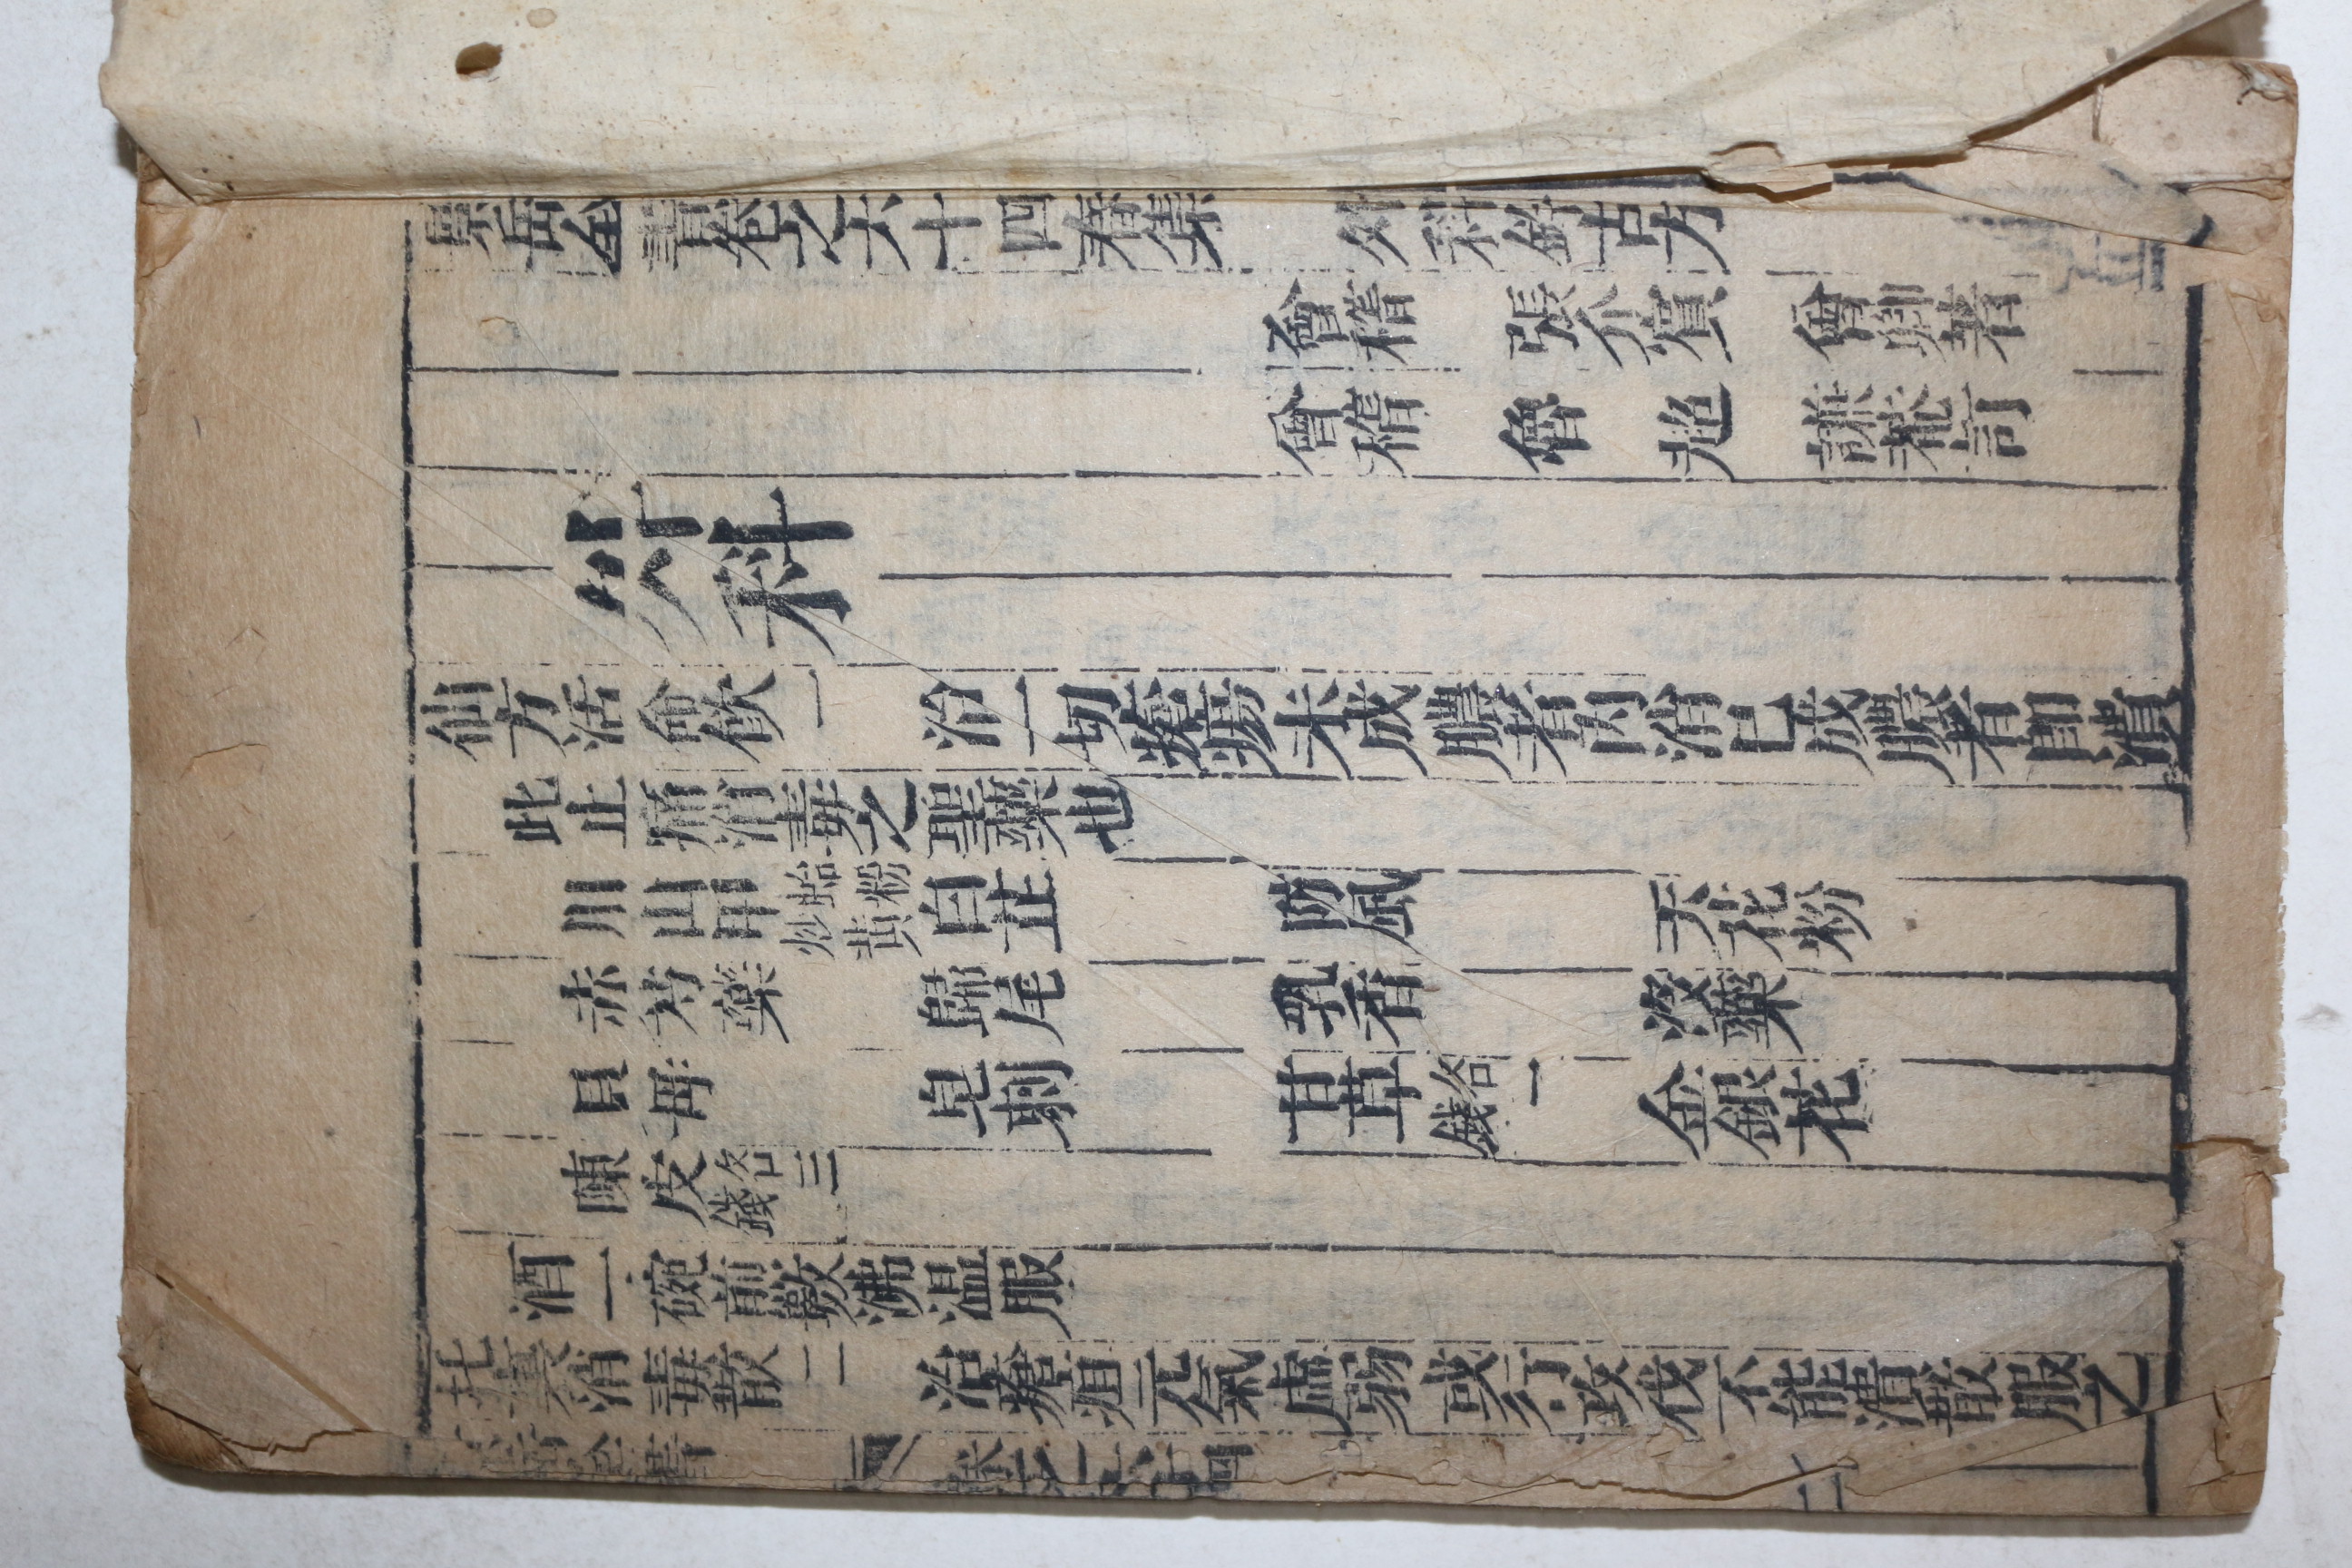 景岳全書卷之六十四春集　外科鈐古方
會稽　張介賓　會卿著
會稽　魯超　謙菴訂
外科
仙方活命飲一　治一切瘡瘍未成膿者內消已成膿者即潰
此止痛消毒之聖藥也
川山甲蛤粉炒黃　白芷　防風　天花粉
赤芍藥　歸尾　乳香　沒藥
貝母　皂刺　甘草各一錢　金銀花
陳皮各三錢
酒一碗煎數沸溫服
托裏消毒散二　治癰疽元氣虛弱或行攻伐不能潰散服之